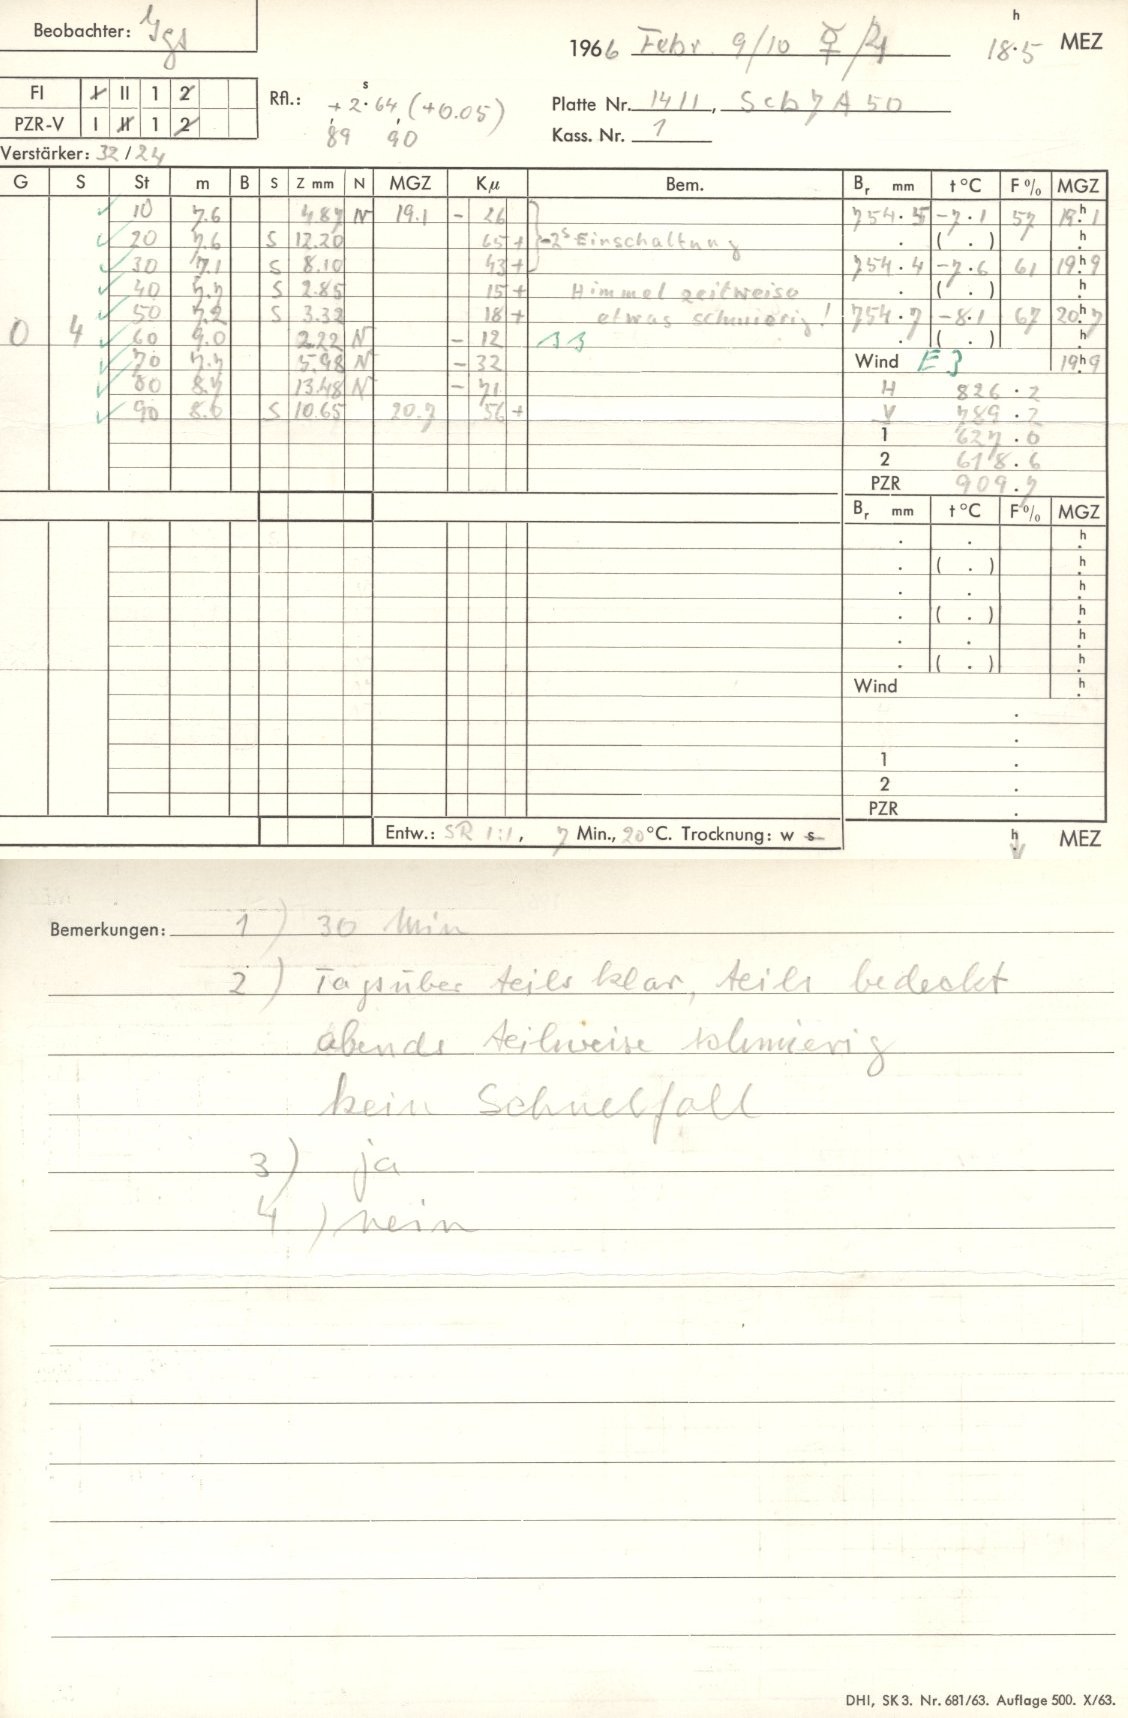 Beobachter: Jgs
1966 Febr. 9/10 ☿/♃ 18.5 h MEZ
FI I II 1 2
PZR-V I II 1 2
Rfl.: + 2.64 s (+0.05)
89 90
Platte Nr. 1411, Sch 7 A 50
Kass. Nr. 1
Verstärker: 32/24
G S St m B S Z mm N MGZ Kµ Bem. Br mm t °C F % MGZ
10 7.6 4.87 N 19.1 - 26 754.5 -7.1 57 19h.1
20 7.6 S 12.20 65 + -2s Einschaltung . ( . ) h.
30 7.1 S 8.10 43 + 754.4 -7.6 61 19h.9
40 7.7 S 2.85 15 + Himmel zeitweise . ( . ) h.
50 7.2 S 3.32 18 + etwas schmierig! 754.7 -8.1 67 20h.7
0 4 60 9.0 2.22 N - 12 . ( . ) h.
70 7.7 5.98 N - 32 Wind E 3 19h9
80 8.7 13.48 N - 71 H 826.2
90 8.0 S 10.65 20.7 56 + V 789.2
1 627.0
2 618.6
PZR 909.7
Br mm t °C F % MGZ
. . h.
. ( . ) h.
. . h.
. ( . ) h.
. . h.
. ( . ) h.
Wind h.
.
.
1 .
2 .
PZR .
Entw.: SR 1:1, 7 Min., 20 °C. Trocknung: w s h. MEZ
Bemerkungen: 1) 30 Min
2) Tagsüber teils klar, teils bedeckt
abends teilweise schmierig
kein Schneefall
3) ja
4) nein
DHI, SK 3. Nr. 681/63. Auflage 500. X/63.